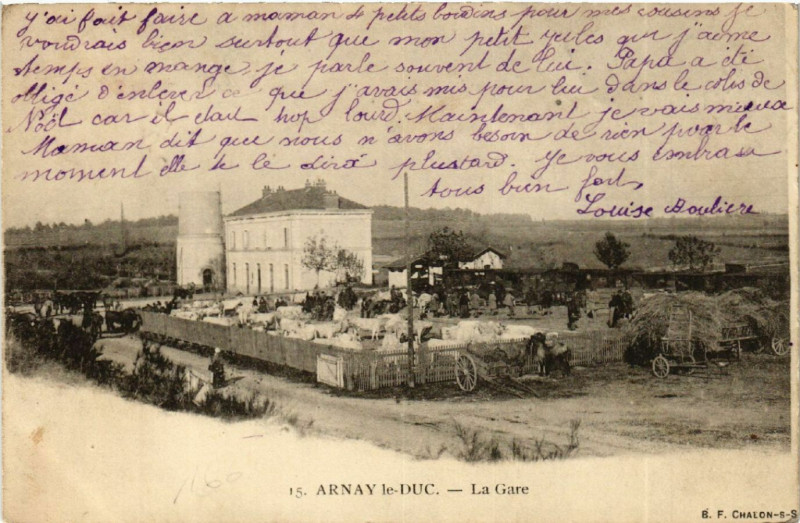 j'ai fait faire a maman 4 petits boudins pour mes cousins je
voudrais bien surtout que mon petit jules qui j'aime
temps en mange, je parle souvent de lui. Papa a été
obligé d'enlever ce que j'avais mis pour lui dans le colis de
Noël car il était trop lourd. Maintenant je vais mieux
Maman dit que nous n'avons besoin de rien pour le
moment elle te le dira plustard. je vous embrasse
tous bien fort,
Louise Bouliere
1160
15. ARNAY le-DUC. — La Gare
B. F. CHALON-S-S